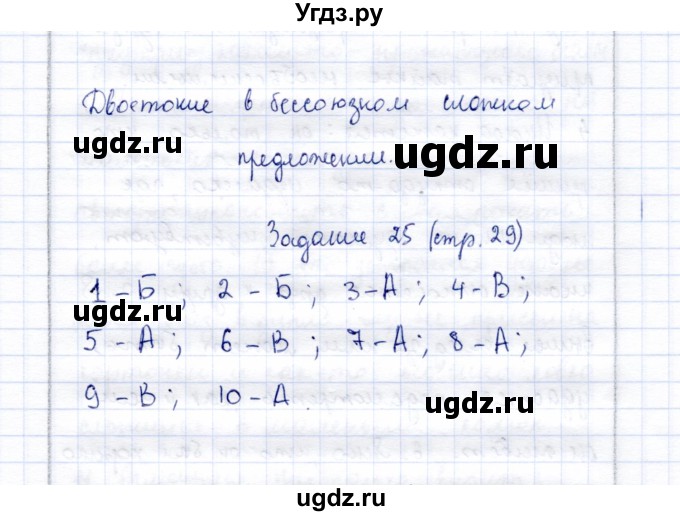 Угдз.ру
Двоеточие в бессоюзном сложном
ugdz.ru ugdz.ru
предложении.
Задание 25 (стр. 29)
ugdz.ru
1 – Б; 2 – Б; 3 – А; 4 – В;
5 – А; 6 – В; 7 – А; 8 – А;
ugdz.ru ugdz.ru
9 – В; 10 – А
ugdz.ru
ugdz.ru